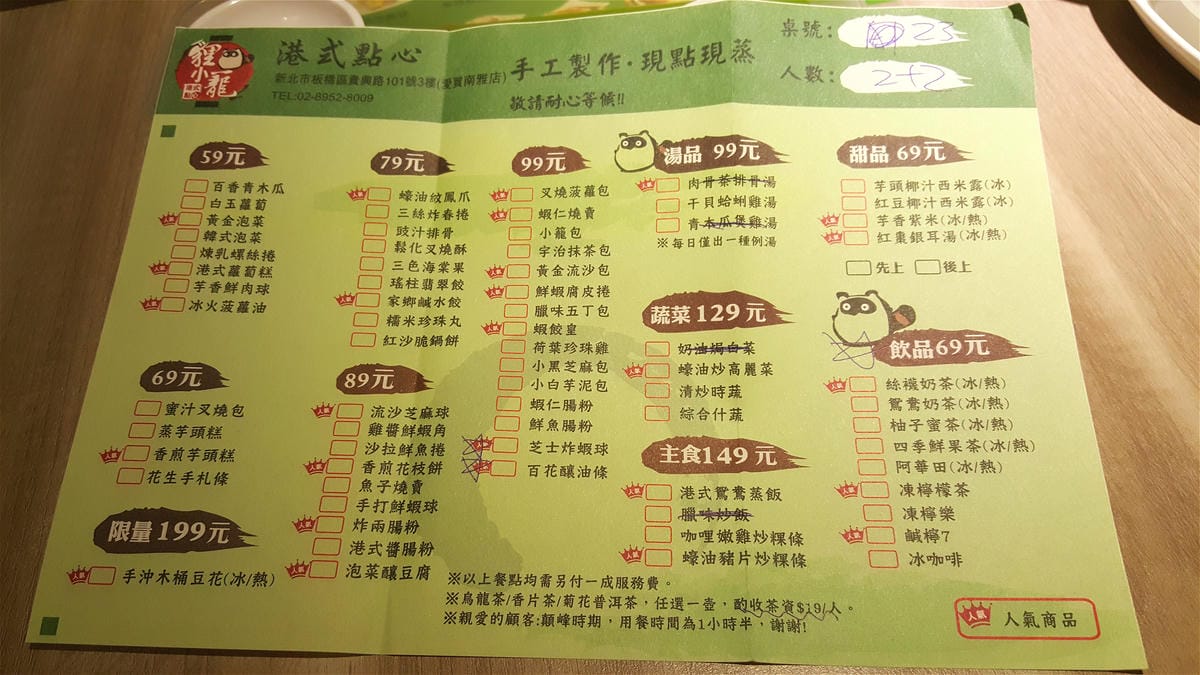 貍小龍
港式點心
港式點心
新北市板橋區貴興路101號3樓(愛買南雅店)
TEL:02-8952-8009
手工製作·現點現蒸
敬請耐心等候!!
桌號: 23
人數: 2+2
59元
百香青木瓜
白玉蘿蔔
人氣 黃金泡菜
韓式泡菜
煉乳螺絲捲
人氣 港式蘿蔔糕
芋香鮮肉球
人氣 冰火菠蘿油
69元
蜜汁叉燒包
蒸芋頭糕
人氣 香煎芋頭糕
花生手札條
限量 199元
人氣 手沖木桶豆花(冰/熱)
79元
人氣 蠔油紋鳳爪
三絲炸春捲
豉汁排骨
鬆化叉燒酥
三色海棠果
瑤柱翡翠餃
人氣 家鄉鹹水餃
糯米珍珠丸
紅沙脆鍋餅
89元
人氣 流沙芝麻球
雞醬鮮蝦角
沙拉鮮魚捲
人氣 香煎花枝餅
魚子燒賣
手打鮮蝦球
人氣 炸兩腸粉
港式醬腸粉
人氣 泡菜釀豆腐
99元
人氣 叉燒菠蘿包
人氣 蝦仁燒賣
小籠包
宇治抹茶包
人氣 黃金流沙包
人氣 鮮蝦腐皮捲
臘味五丁包
人氣 蝦餃皇
荷葉珍珠雞
小黑芝麻包
小白芋泥包
蝦仁腸粉
鮮魚腸粉
人氣 芝士炸蝦球
人氣 百花釀油條
湯品 99元
人氣 肉骨茶排骨湯
干貝蛤蜊雞湯
青木瓜煲雞湯
※每日僅出一種例湯
蔬菜 129元
奶油焗白菜
人氣 蠔油炒高麗菜
清炒時蔬
綜合什蔬
主食149元
人氣 港式鴛鴦蒸飯
臘味炒飯
咖哩嫩雞炒粿條
人氣 蠔油豬片炒粿條
甜品 69元
芋頭椰汁西米露(冰)
紅豆椰汁西米露(冰)
人氣 芋香紫米(冰/熱)
人氣 紅棗銀耳湯(冰/熱)
先上 後上
飲品69元
人氣 絲襪奶茶(冰/熱)
鴛鴦奶茶(冰/熱)
柚子蜜茶(冰/熱)
四季鮮果茶(冰/熱)
阿華田(冰/熱)
人氣 凍檸檬茶
凍檸樂
人氣 鹹檸7
冰咖啡
※以上餐點均需另付一成服務費。
※烏龍茶/香片茶/菊花普洱茶,任選一壺,酌收茶資$19/人。
※親愛的顧客:顛峰時期,用餐時間為1小時半,謝謝!
人氣 人氣商品